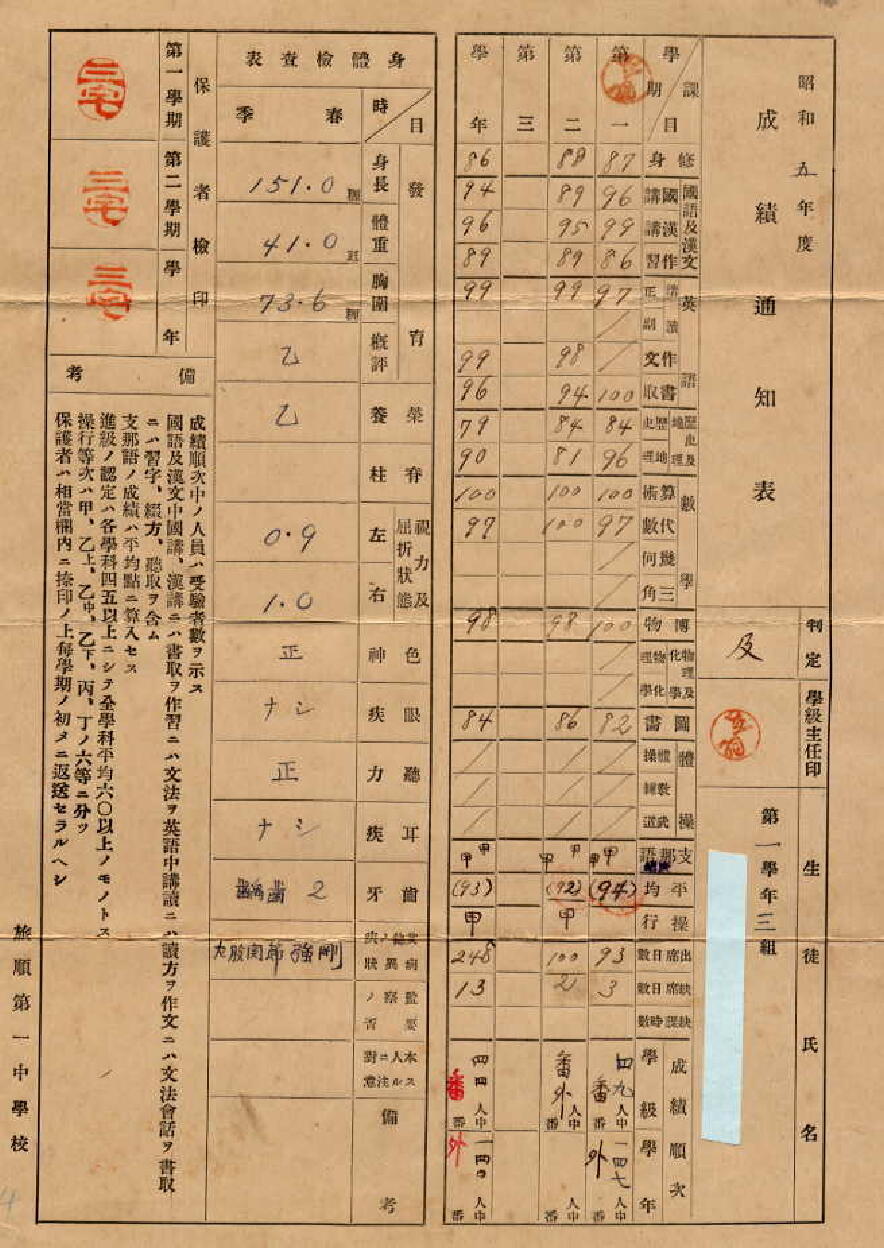 昭和五年度
成績通知表
判定
及
學級主任印
第一學年三組
生徒氏名
課目
學期
第一
第二
第三
學年
修身 87 88 86
國語及漢文
國講 96 89 94
漢講 99 95 96
作習 86 89 89
英語
講讀
正 97 99 99
副 /
作文 / 98 99
書取 100 94 96
歷史及地理
歷史 84 84 79
地理 96 81 90
數學
算術 100 100 100
代數 97 100 99
幾何 /
三角 /
博物 100 98 98
物理及化學
物理 /
化學 /
圖書 82 86 84
體操
體操 / / /
敎練 / / /
武道 / / /
支那語 甲甲 甲甲 甲甲
平均 (94) (92) (93)
操行 甲 甲
出席日數 93 100 248
缺席日數 3 2 13
缺課時數
成績順次
學級 四九人中 番外 人中番外 四四人中 番
學年 一四七人中 番外 人中番 人中 番外
身體檢查表
時/目
春季
發育
身長 151.0 糎
體重 41.0
胸圍 73.6 糎
概評 乙
榮養 乙
脊柱
視力及屈折狀態
左 0.9
右 1.0
色神 正
眼疾 ナシ
聽力 正
耳疾 ナシ
齒牙 齲齒 2
其ノ他ノ疾病異狀 股関節強剛
監察ノ要否
本人ニ對スル注意
備考
保護者檢印
第一學期 三宅
第二學期 三宅
學年 三宅
備考
成績順次中ノ人員ハ受驗者數ヲ示ス
國語及漢文中國講、漢講ニハ書取ヲ作習ニハ文法ヲ英語中講讀ニハ讀方ヲ作文ニハ文法會話ヲ書取
ニハ習字、綴方、聽取ヲ含ム
支那語ノ成績ハ平均點ニ算入セス
進級ノ認定ハ各學科四五以上ニシテ全學科平均六〇以上ノモノトス
操行等次ハ甲、乙上、乙中、乙下、丙、丁ノ六等ニ分ツ
保護者ハ相當欄內ニ捺印ノ上每學期ノ初メニ返送セラルヘシ
旅順第一中學校